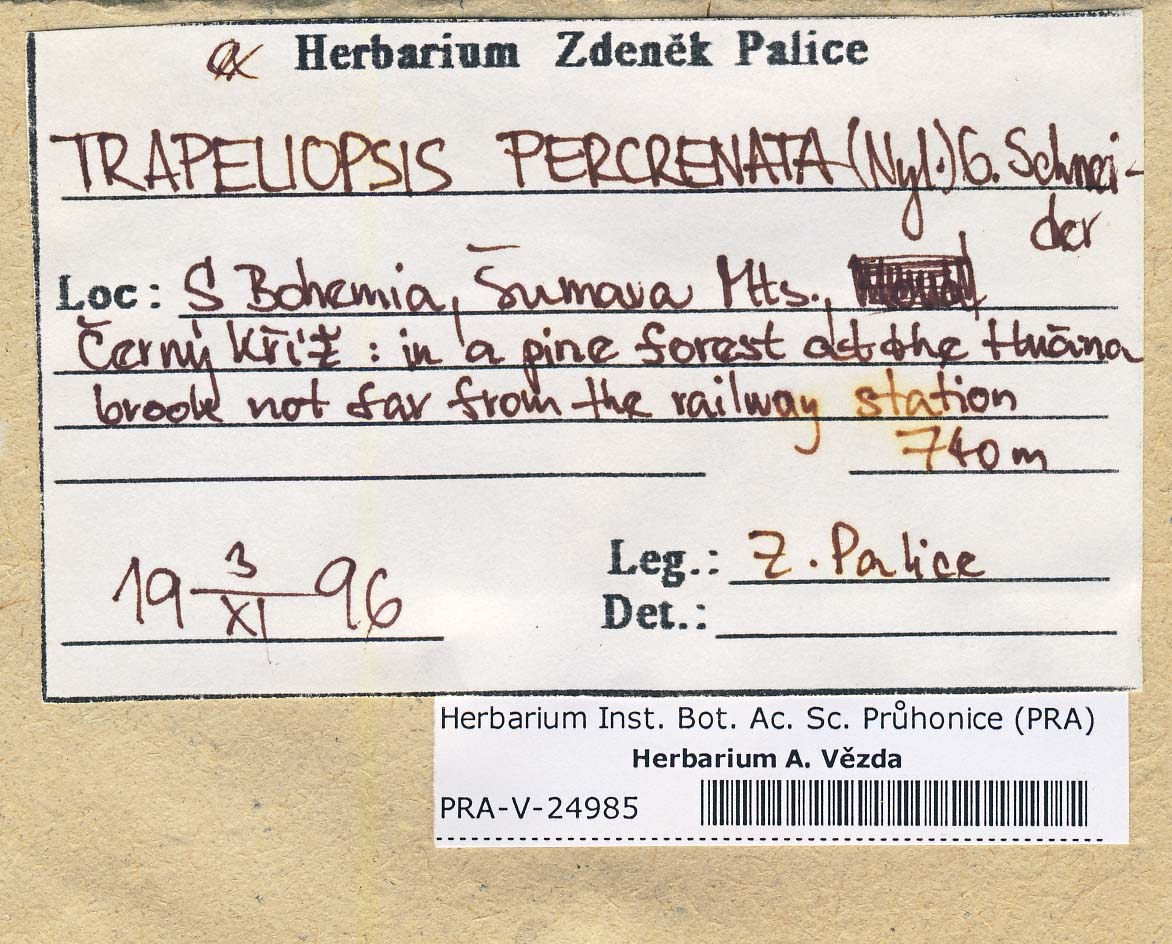 ex Herbarium Zdeněk Palice
TRAPELIOPSIS PERCRENATA (Nyl.) G. Schnei-
der
Loc: S Bohemia, Šumava Mts.,
Černý Kříž: in a pine forest at the Hučina
brook not far from the railway station
740 m
19 3/XI 96
Leg.: Z. Palice
Det.:
Herbarium Inst. Bot. Ac. Sc. Průhonice (PRA)
Herbarium A. Vězda
PRA-V-24985